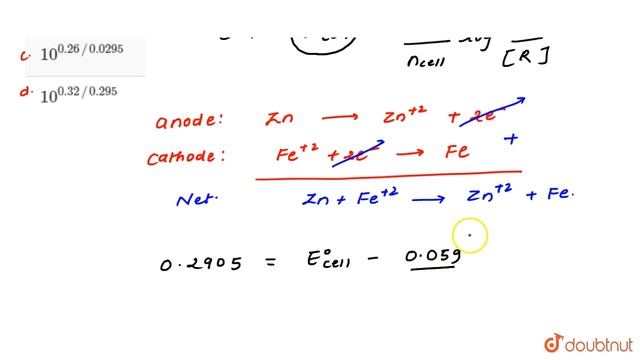 n cell [R]
c. 10^0.26/0.0295
d. 10^0.32/0.295
anode: Zn ⟶ Zn^+2 + 2e^-
Cathode: Fe^+2 + 2e^- ⟶ Fe +
Net. Zn + Fe^+2 ⟶ Zn^+2 + Fe.
0.2905 = E°cell - 0.059
doubtnut